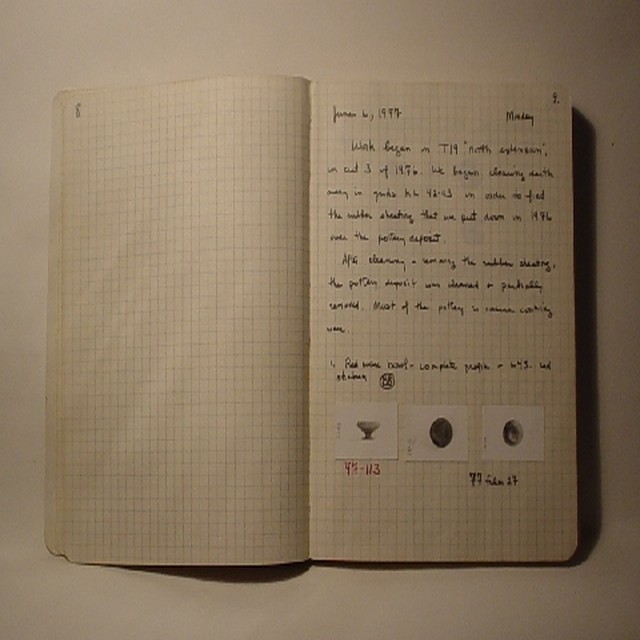 8
9.
June 6, 1977 Monday
Work began on T19 "north extension",
in cut 3 of 1976. We began cleaning earth
away in grids 42-43 in order to find
the rubber sheeting that we put down in 1976
over the pottery deposit.
After cleaning + removing the rubber sheeting,
the pottery deposit was cleaned + partially
removed. Most of the pottery is coarse cooking
ware.
1. Red ware bowl - complete profile - red
77 film 27